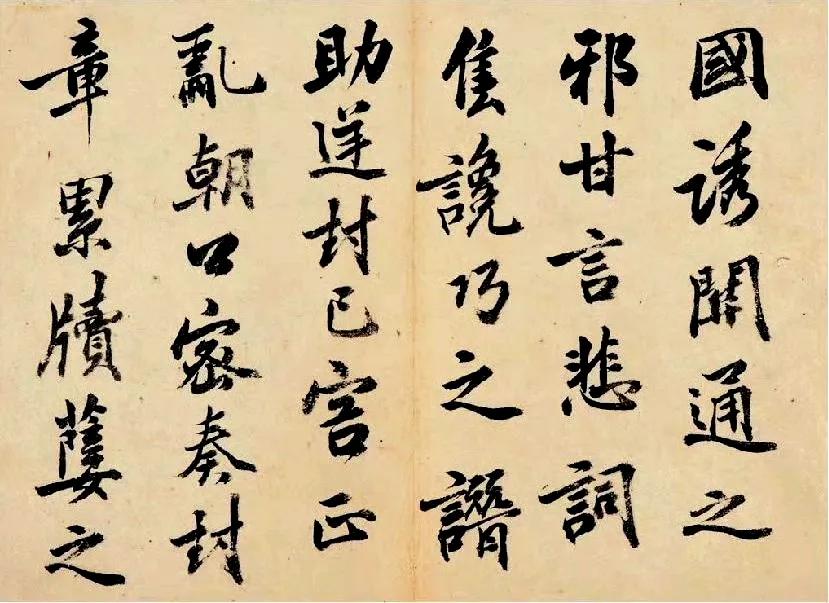 國誘開通之
邪甘言悲詞
售讒巧之譖
助逆封己害正
亂朝口密奏封
章累牘之